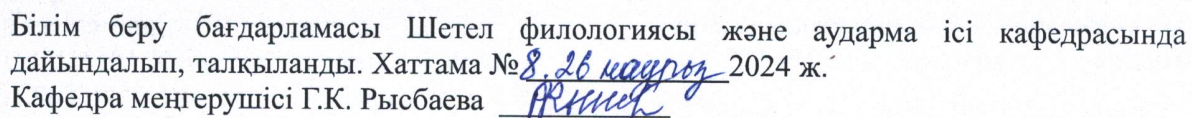 Білім беру бағдарламасы Шетел филологиясы және аударма ісі кафедрасында
дайындалып, талқыланды. Хаттама №8, 26 наурыз 2024 ж.
Кафедра меңгерушісі Г.К. Рысбаева